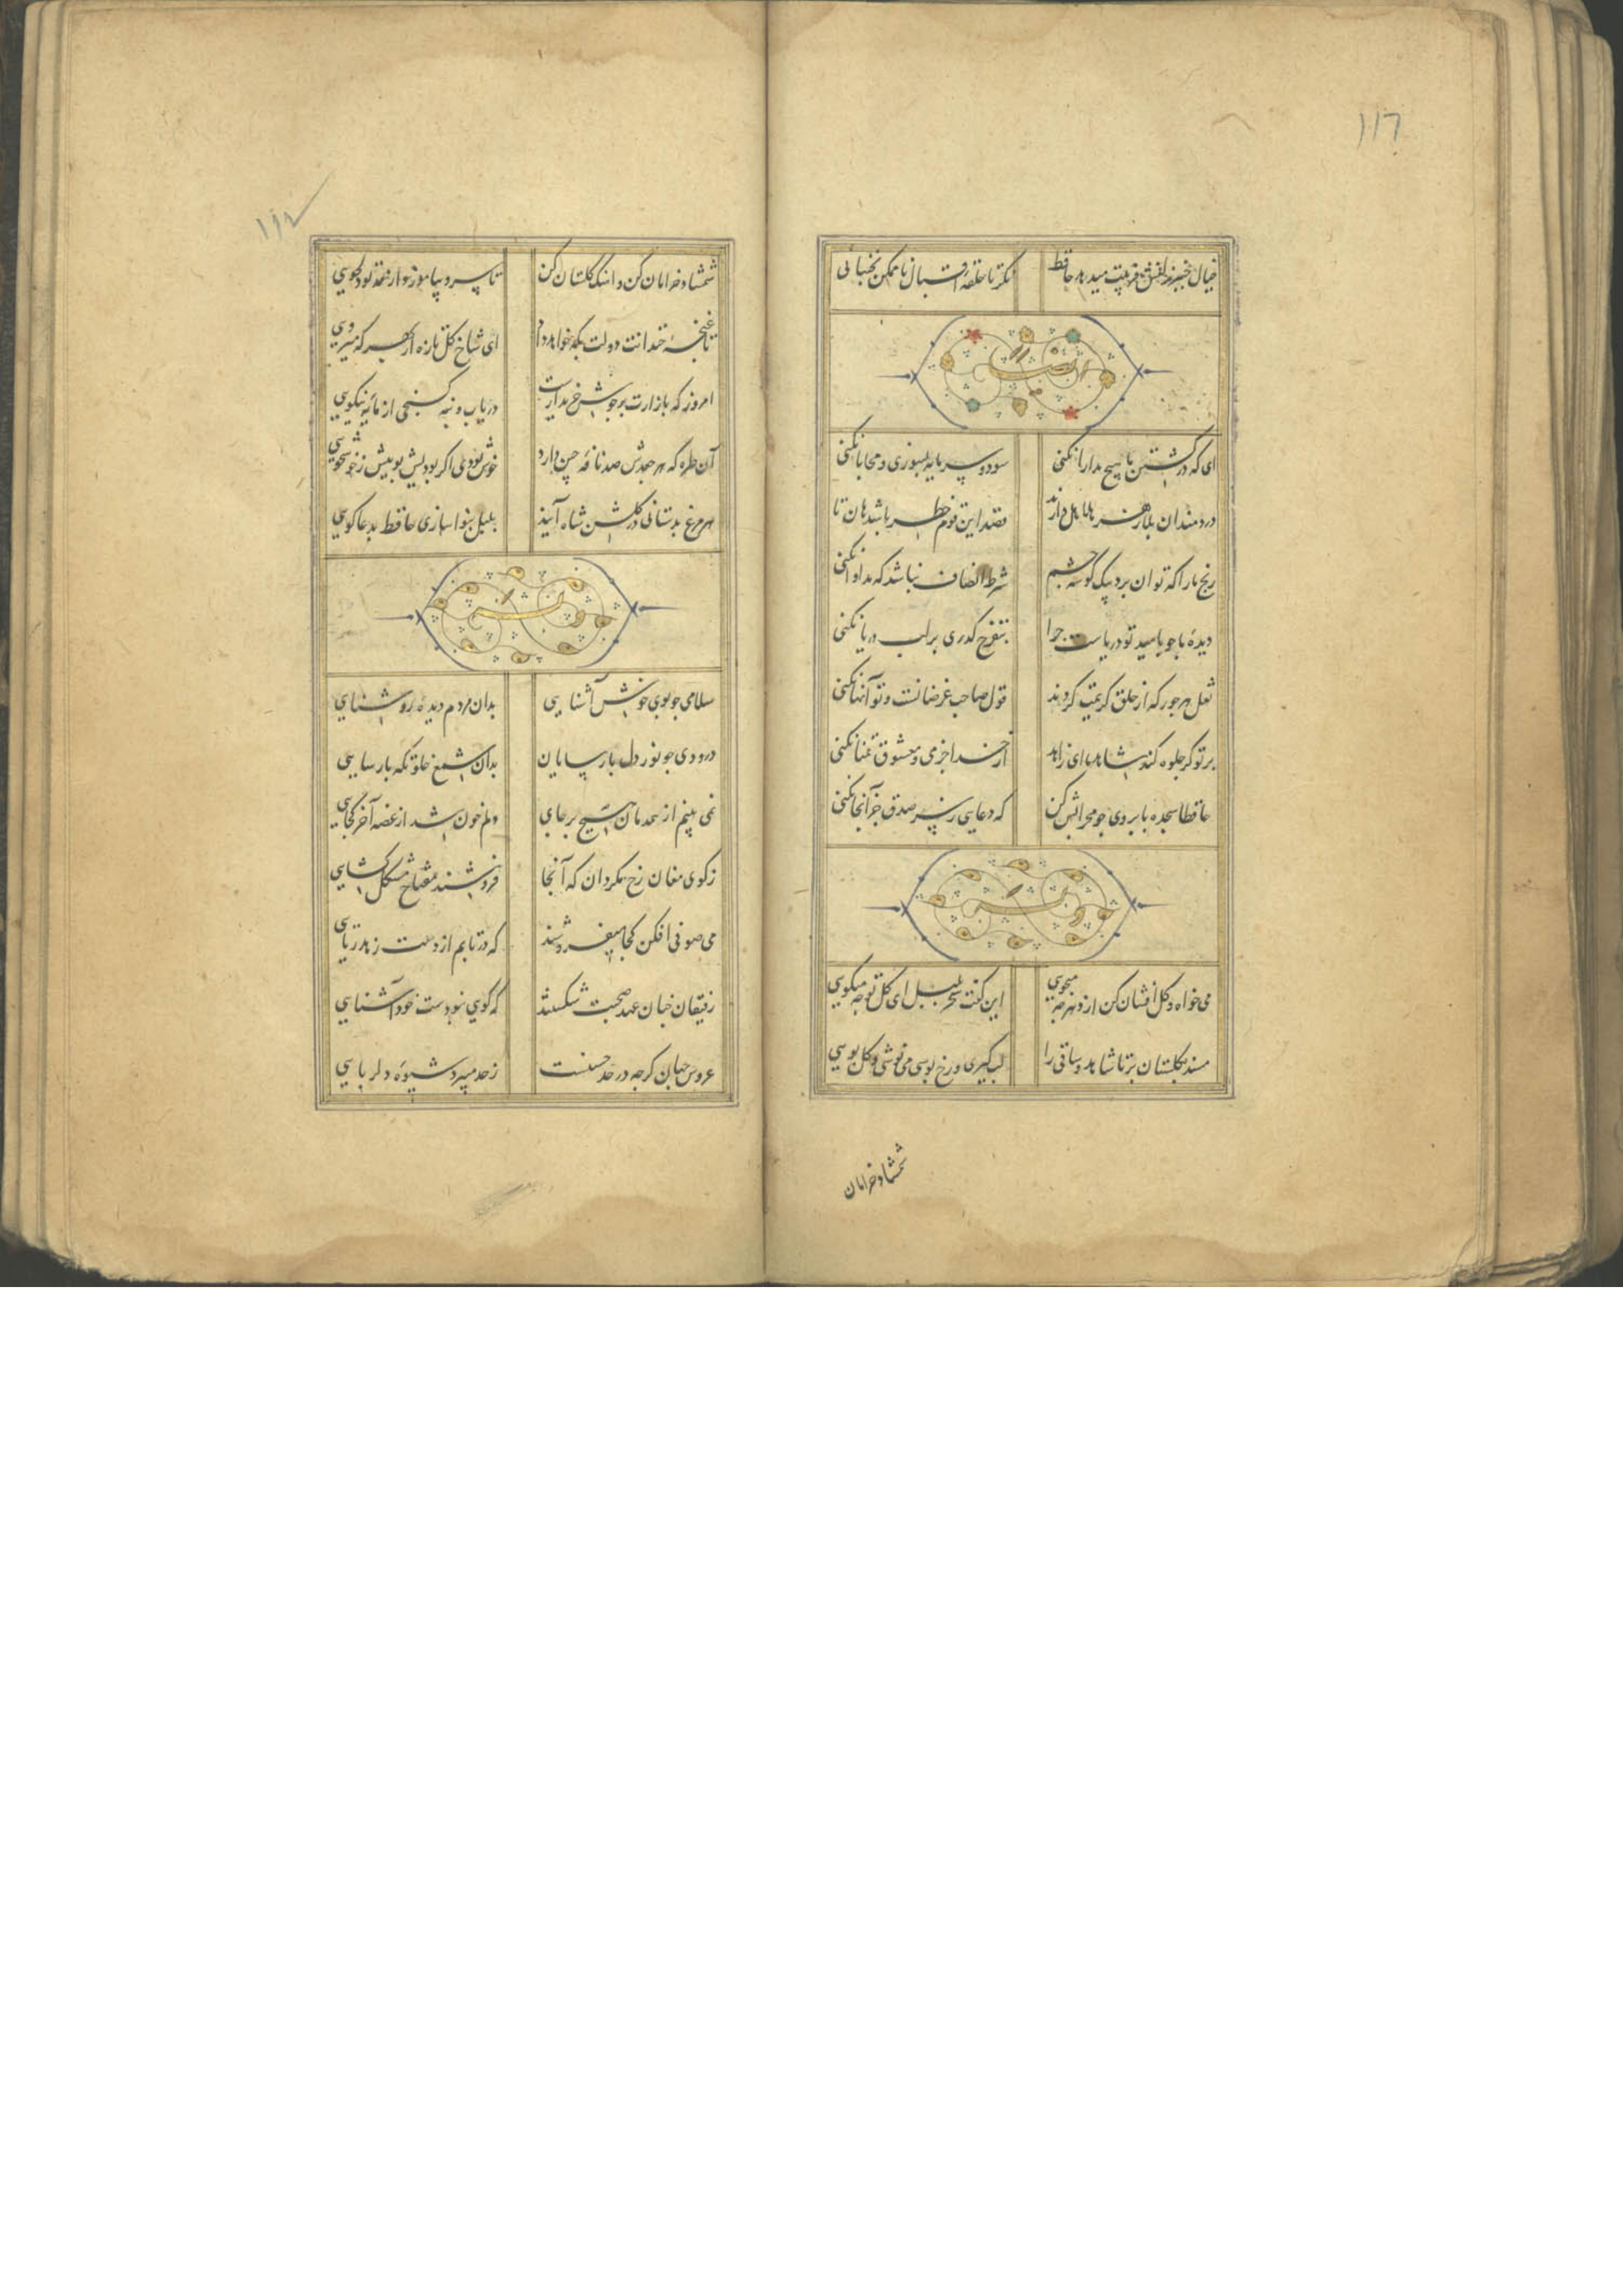 ١١٦
خیال چنبر زلفش فریبت میدهد حافظ نگر تا حلقه اقبال ناممکن نجنبانی
ای که در کشتن ما هیچ مدارا نکنی سود و سرمایه بسوزی و محابا نکنی
دردمندان بلا زهر هلاهل دارند قصد این قوم خطر باشد هان تا نکنی
رنج ما را که توان برد بیک گوشه چشم شرط انصاف نباشد که مداوا نکنی
دیدهٔ ما چو بامید تو دریاست چرا بتفرج گذری بر لب دریا نکنی
نقل هر جور که از خلق کریمت کردند قول صاحب غرضانست و تو آنها نکنی
بر تو گر جلوه کند شاهد ما ای زاهد از خدا جز می و معشوق تمنا نکنی
حافظا سجده بابروی چو محرابش کن که دعایی ز سر صدق جز آنجا نکنی
وله
می خواه و گل افشان کن از دهر چه میجویی این گفت سحر بلبل ای گل تو چه میگویی
مسند بگلستان بر تا شاهد و ساقی را لب گیری و رخ بوسی می نوشی و گل بویی
شمشاد خرامان
١١٧
شمشاد خرامان کن و آهنگ گلستان کن تا سرو بیاموزد از قد تو دلجویی
تا غنچهٔ خندانت دولت بکه خواهد داد ای شاخ گل تازه از بهر که میرویی
امروز که بازارت پر جوش خریدارست دریاب و بنه گنجی از مایه نیکویی
آن طره که هر جعدش صد نافه چین دارد خوش بودی اگر بودیش بویش ز خوشخویی
هر مرغ بدستانی در گلشن شاه آیند بلبل بنوا سازی حافظ بدعاگویی
وله
سلامی چو بوی خوش آشنایی بدان مردم دیدهٔ روشنایی
درودی چو نور دل پارسایان بدان شمع خلوتگه پارسایی
نمی بینم از همدمان هیچ بر جای دلم خون شد از غصه آخر کجایی
ز کوی مغان رخ مگردان که آنجا فروشند مفتاح مشکل گشایی
می صوفی افکن کجا میفروشند که در تابم از دست زهد ریایی
رفیقان چنان عهد صحبت شکستند که گویی نبودست خود آشنایی
عروس جهان گرچه در حد حسنست ز حد میبرد شیوه دلربایی